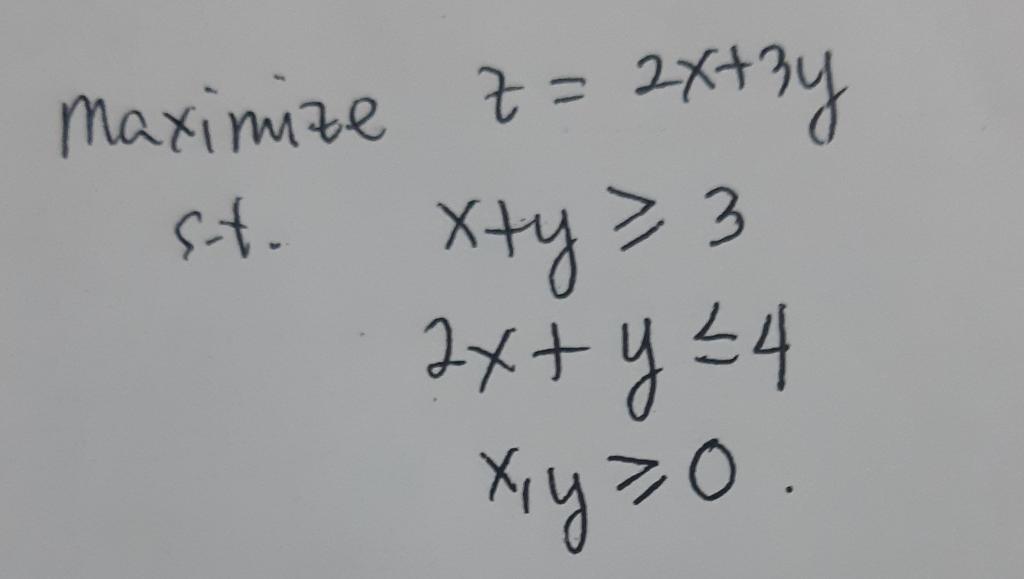 maximize z = 2x+3y
s.t. x+y ⩾ 3
2x + y ≤ 4
x, y ⩾ 0 .